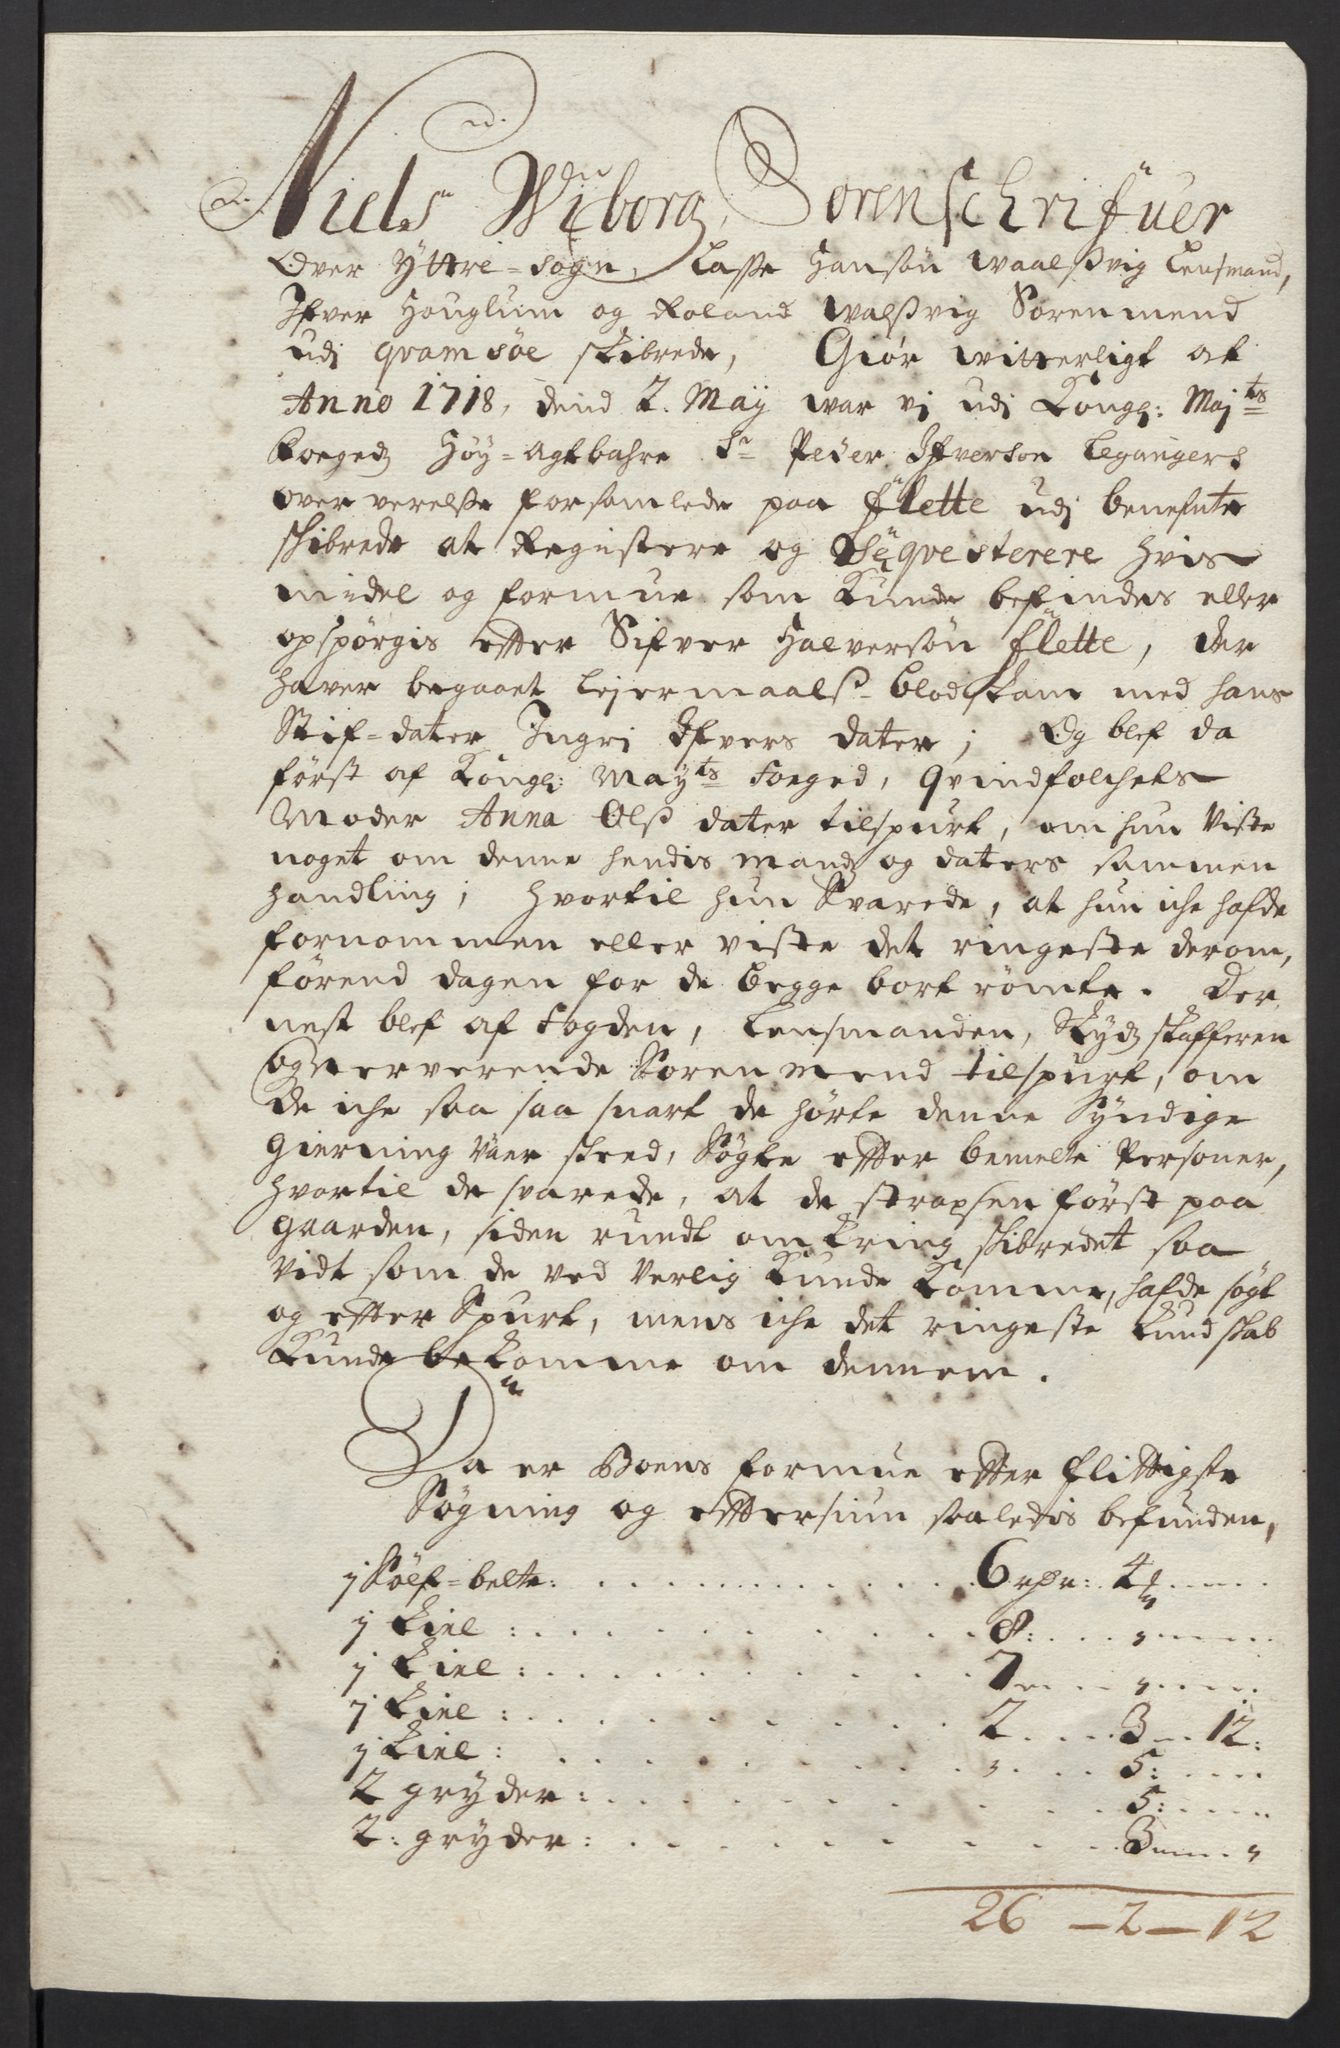 Niels Wiborg, Sorenschrifuer
Over Yttre-Sogn, Lasse Hansøn Waalsvig Lensmand,
Ifver Houglum og Roland Walsvig Sorenmend
udj qvamsøe skibrede, Giør witterligt at
Anno 1718, dend 2. Maÿ war vj udj Kongl: Maj ts
Foegedz Høy-agtbahre Sr Peder Ifverson Legangers
over verelse forsamlede paa flette udj benefnte
skibrede at Registere og Seqvesterere hvis
midel og formue som kunde befindes eller
opspørgis effter Sifver Halversøn flette, der
haver begaaet Lejermaalß-blodskam med hans
Stif-dater Ingri Ifvers dater; Og blef da
først af Kongl: Maÿts Foeged, qvindfolchets
Moder Anna Olß dater tilspurt, om hun viste
noget om denne hendis mandz og daters sammen
handling; hvortil hun Svarede, at hun iche hafde
fornommen eller viste det ringeste derom,
førend dagen for de begge bort rømte. Der
nest blef af Fogden, Lensmanden, Skydz skafferen
og nerverende Soren mend tilspurt, om
de iche saa saa snart de hørte denne Syndige
gierning vaar skeed, Søgte effter bemelte Personer,
hvortil de svarede, at de strapsen først paa
gaarden, siden rundt omkring skibredet saa
vidt som de ved verlig kunde komme, hafde søgt
og effter Spurt, mens iche det ringeste kundskab
kunde bekomme om dennem.
Da er Boens formue effter flittigste
Søgning og effterssiun saaledis befunden,
j Sølf-belte: 6 rdr: 4
j kiel: 8:
j kiel: 7
j kiel: 2 3 12:
j kiel: 5:
2 gryder: 5:
2: gryder: 3
26 - 2 - 12